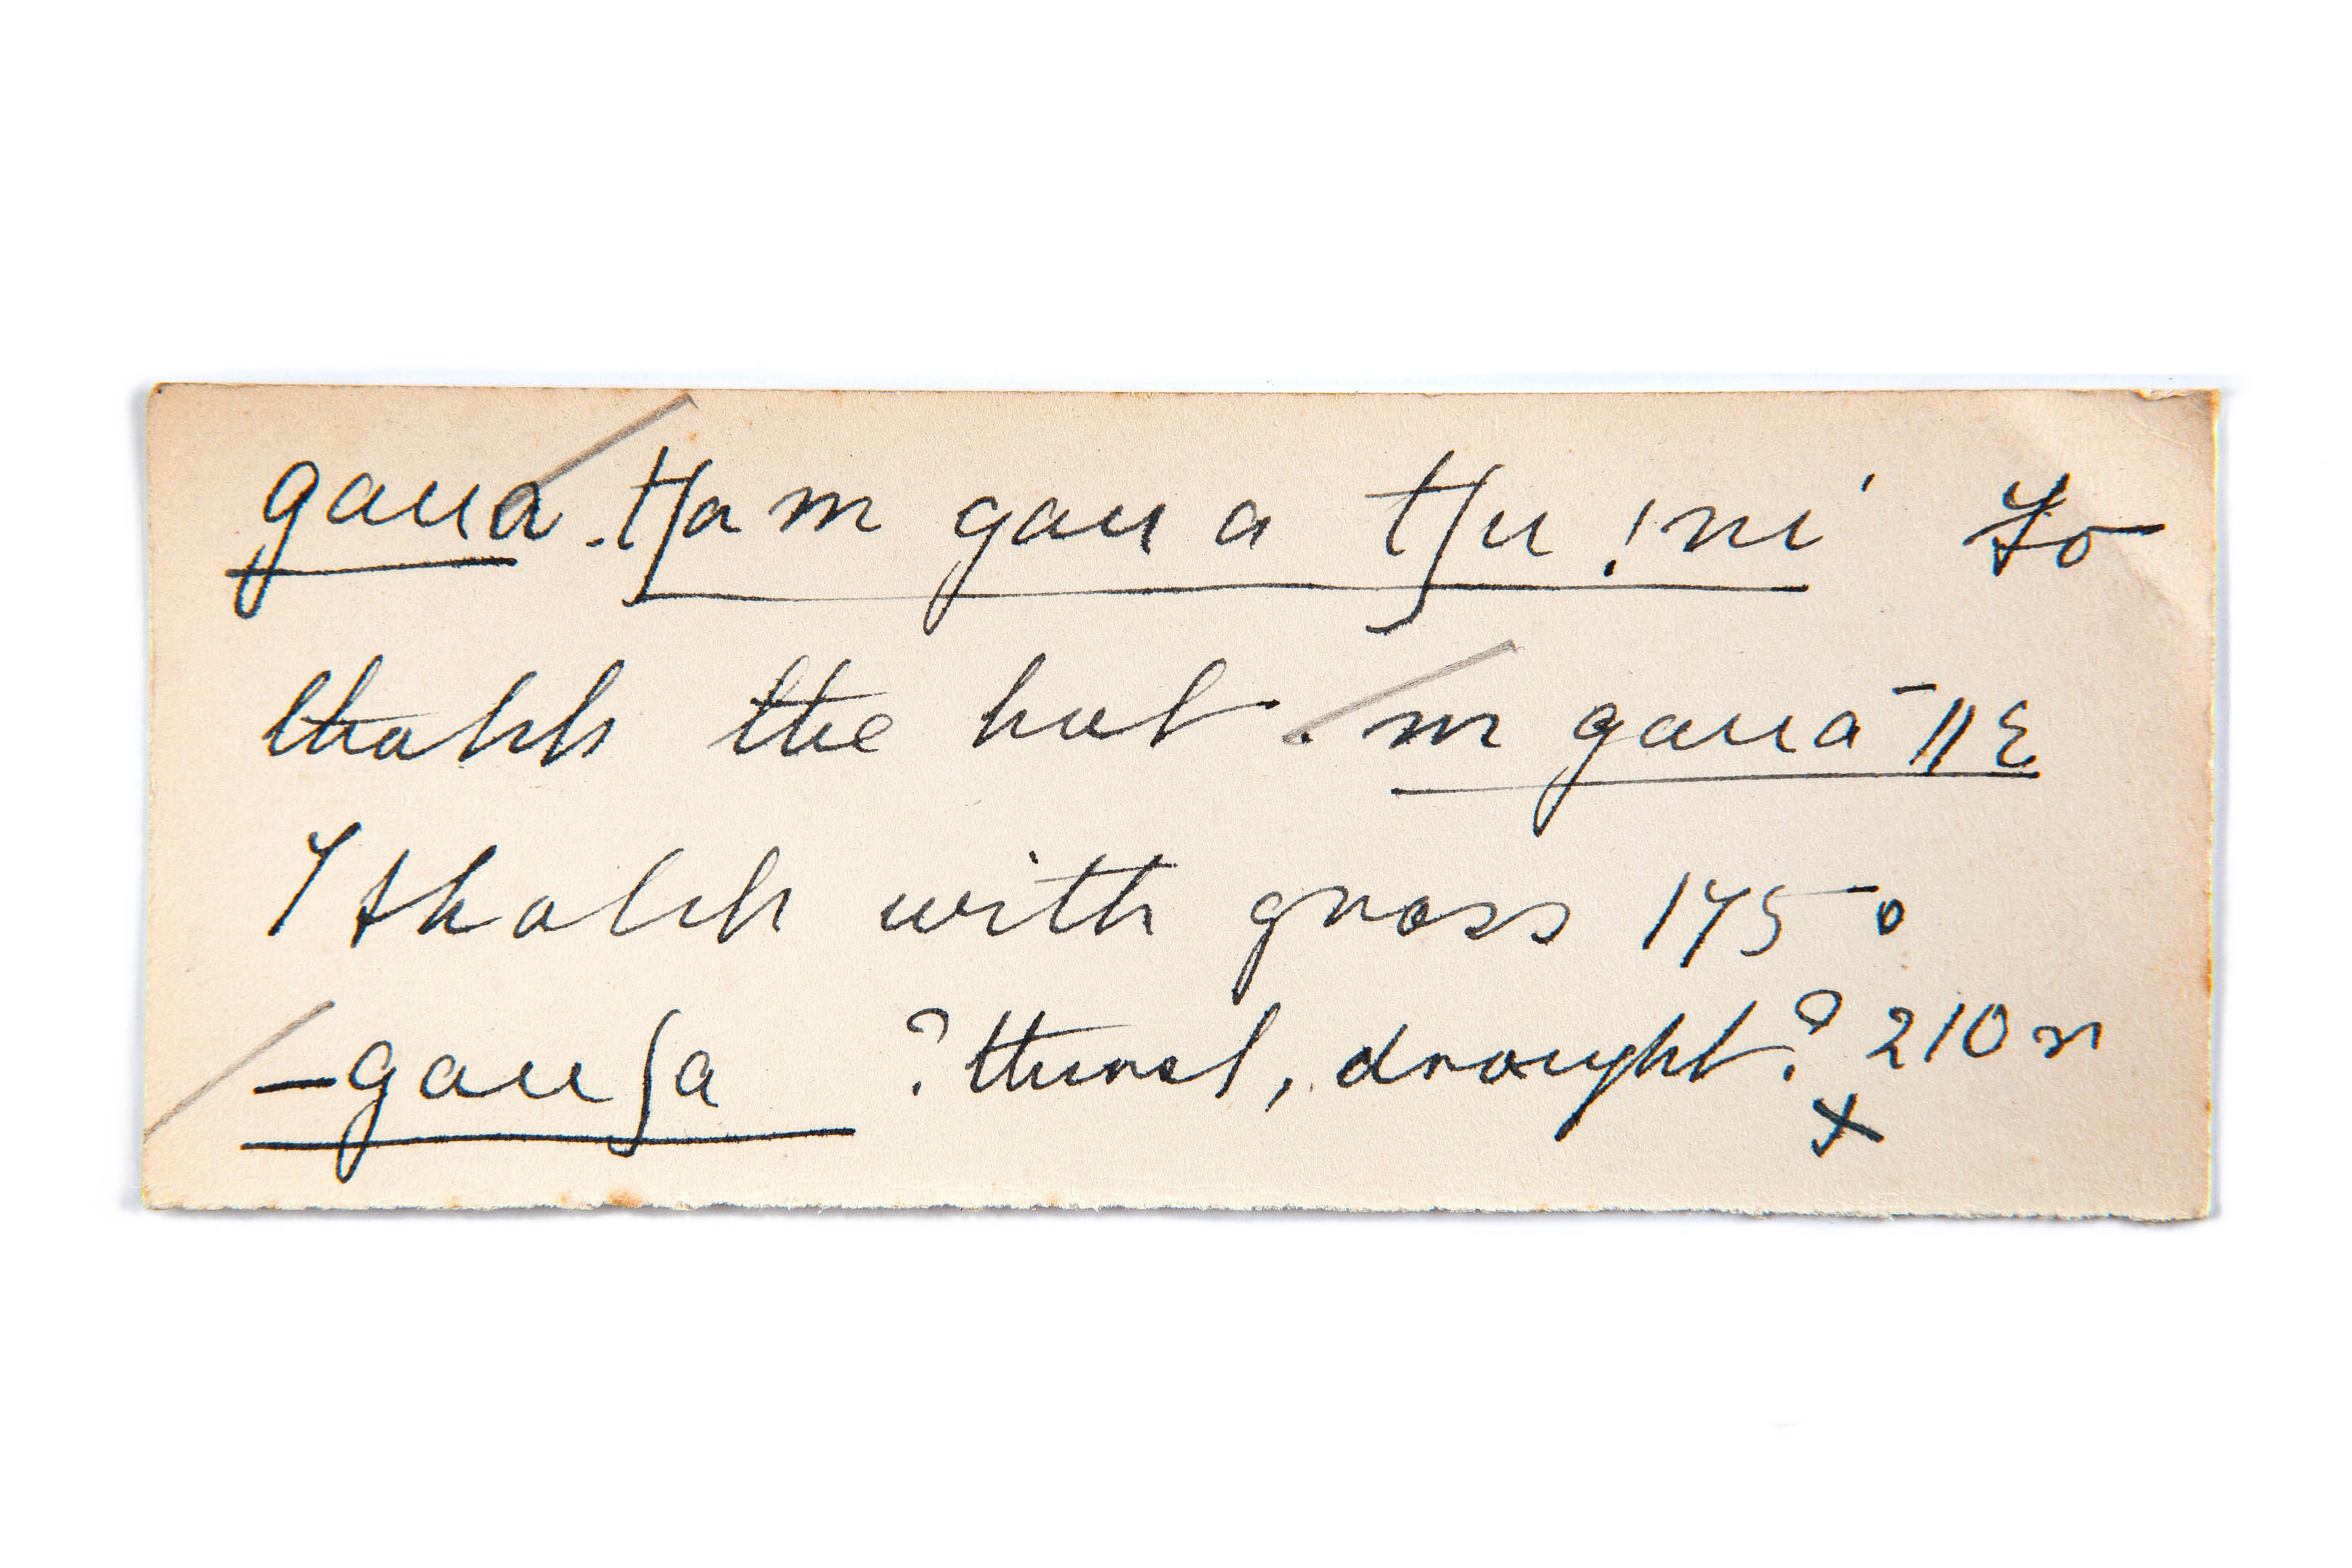 gaua. tʃa m gau a tʃu !ni' to
thatch the hut. m gauā ǁɛ
I thatch with grass 175 o
—gauʃa ? thirst, drought? 210 n
x